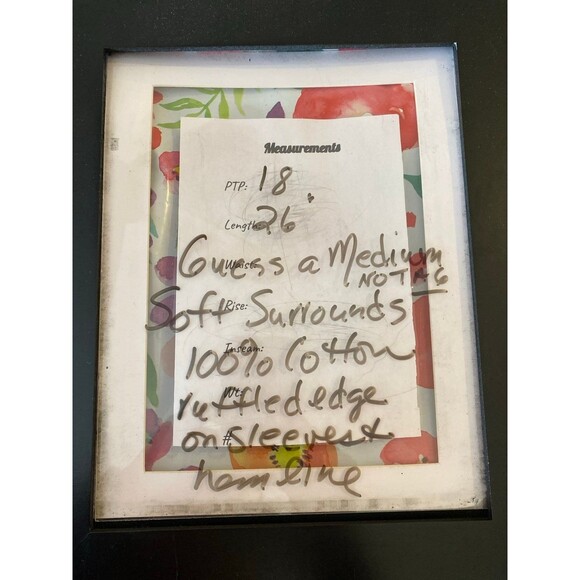 Measurements
PTP: 18
Length: 26
Waist:
Guess a Medium
NO TAG
Rise:
Soft Surrounds
Inseam:
100% Cotton
Wt:
ruffled edge
#:
on sleeves &
hemline